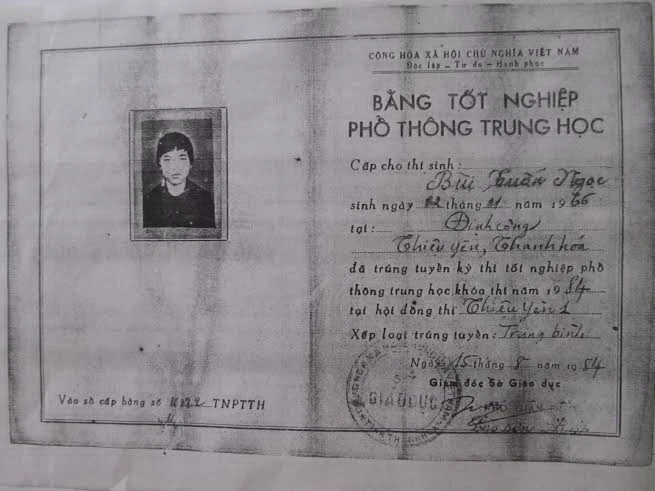 CỘNG HÒA XÃ HỘI CHỦ NGHĨA VIỆT NAM
Độc lập - Tự do - Hạnh phúc
BẰNG TỐT NGHIỆP
PHỔ THÔNG TRUNG HỌC
Cấp cho thí sinh:
Bùi Xuân Ngọc
sinh ngày 02 tháng 01 năm 1966
tại: Định công
Thiệu Yên, Thanh hóa
đã trúng tuyển kỳ thi tốt nghiệp phổ
thông trung học, khóa thi năm 1984
tại hội đồng thi Thiệu Yên 1
Xếp loại trúng tuyển: Trung bình
Ngày 15 tháng 8 năm 1984
Giám đốc Sở Giáo dục
GIÁO DỤC
Vào sổ cấp bằng số TNPTTH